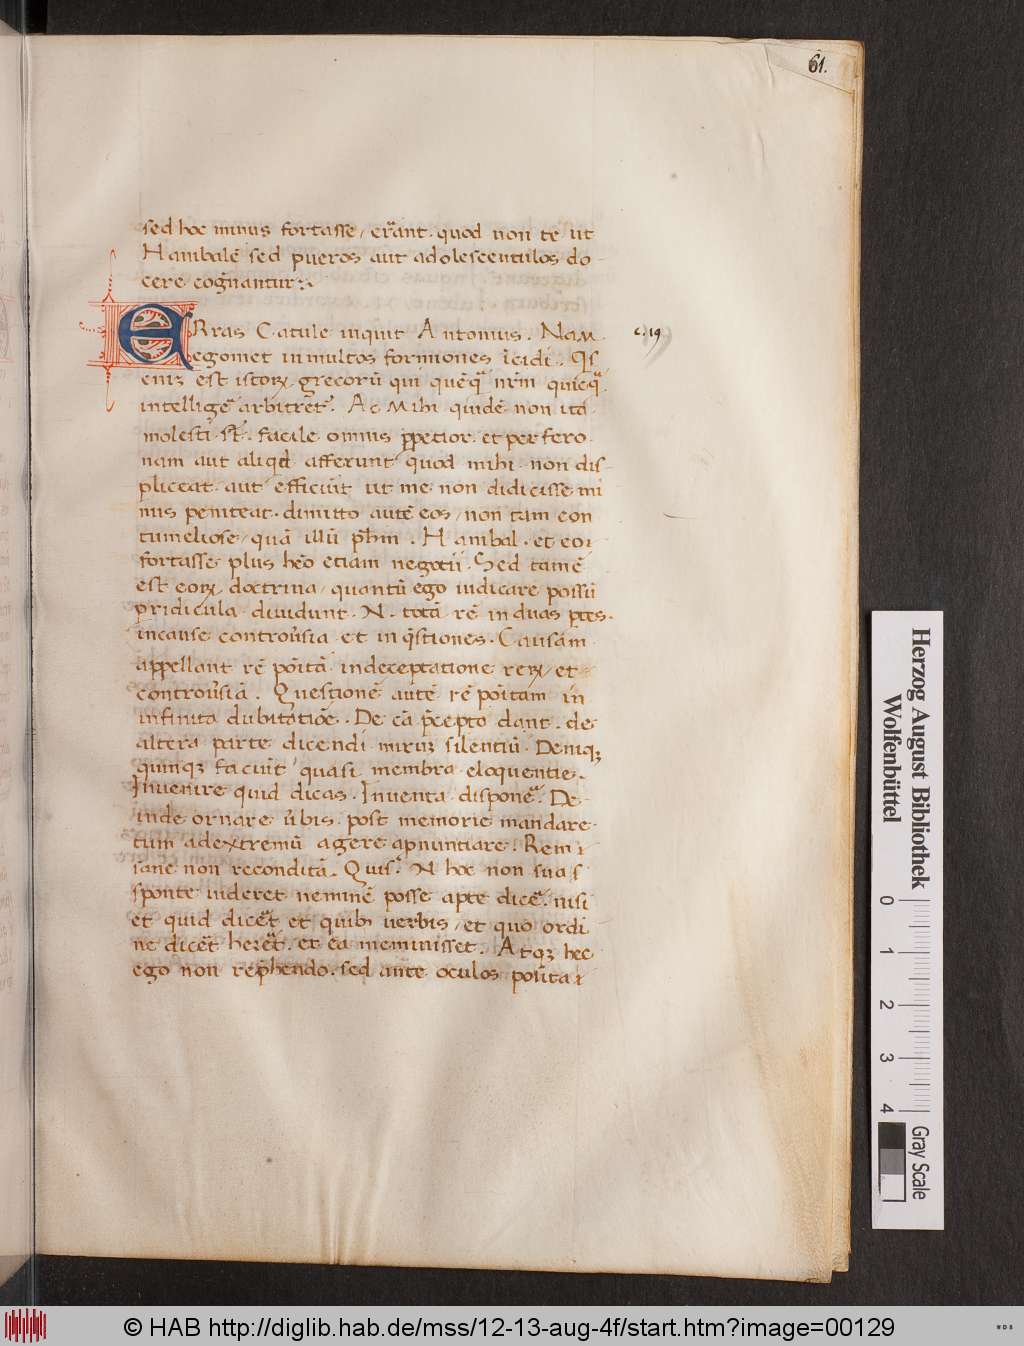 61.
sed hoc minus fortasse / errant. quod non te ut
Hanibalē sed pueros aut adolescentulos do-
cere cognantur:
ERras Catule inquit Antonius. Nam.
c. 19
egomet in multos formiones īcidi. Qs
eniꝫ est istoꝝ grecorū qui quēqᷓ nr̄m quicqᷓ.
intelligeᷓ arbitret᷑. Ac Mihi quidē non ita
molesti st̄. facile omnis ꝑpetior. et perfero
nam aut aliqd afferunt quod mihi non dis-
pliceat. aut efficiūt ut me non didicisse mi
nus peniteat. dimitto autē eos / non tam con
tumeliose / quā illū ph̄m. Hanibal. et eoi
fortasse plus hēo etiam negotii. Sed tamē
est eoꝝ doctrina / quantū ego iudicare possū
pridicula. diuidunt. N. totā rē in duas ptes.
in cause controu̓sia et in q̄stiones. Causam
appellant rē poītā in deceptatione reꝝ / et
controu̓siā. Questionē autē rē poītam in
infinita dubitatiōe. De eā p̄cepta dant. de
altera parte dicendi miruꝫ silentiū. Deniqꝫ
quinqꝫ faciūt quasi membra eloquentie.
Inuenire quid dicas. Inuenta disponeᷓ. De-
inde ornare u̓bis. post memorie mandare.
tum ad extremū agere ac pnuntiare. Rem i
sane non reconditā. Quis. N hoc non sua s
sponte uideret neminē posse apte diceᷓ. nisi
et quid diceᷓt et quibꝫ uerbis / et quo ordi
ne diceᷓt hēret. et ea meminisset. Atqꝫ hec
ego non rephendo. sed ante oculos posita i
Herzog August Bibliothek
Wolfenbüttel
0 1 2 3 4
Gray Scale
© HAB http://diglib.hab.de/mss/12-13-aug-4f/start.htm?image=00129